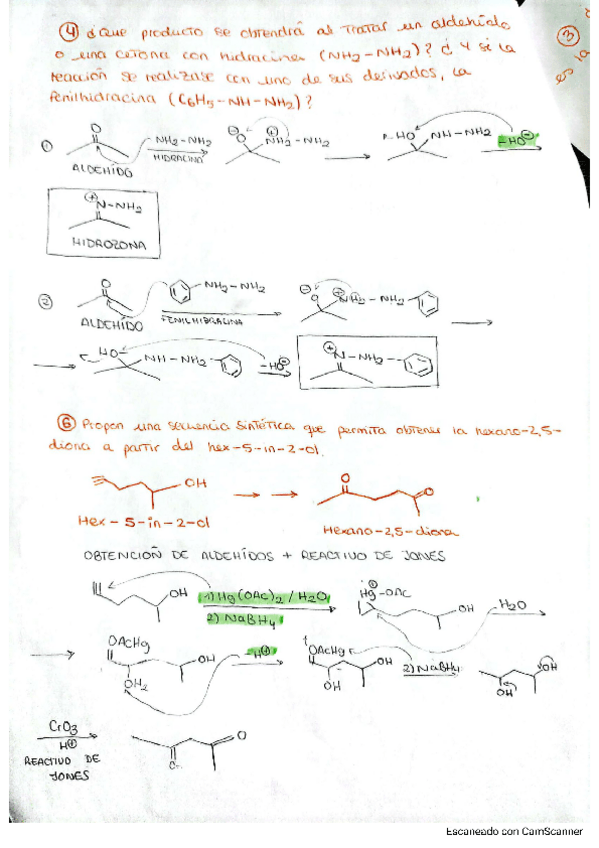 ④ ¿Que producto se obtendrá al tratar un aldehído
o una cetona con hidracina (NH₂-NH₂)? ¿Y si la
reacción se realizase con uno de sus derivados, la
fenilhidracina (C₆H₅-NH-NH₂)?
③
es la
①
O
NH₂-NH₂
HIDRACINA
ALDEHÍDO
⊖
O
⊕
NH₂-NH₂
HO
NH-NH₂
-HO⊖
⊕
N-NH₂
HIDROZONA
②
O
NH₂-NH₂
FENILHIDRACINA
ALDEHÍDO
⊖
O
⊕
NH₂-NH₂
HO
NH-NH₂
-HO⊖
⊕
N-NH₂
⑥ Propon una secuencia sintética que permita obtener la hexano-2,5-
diona a partir del hex-5-in-2-ol.
OH
O
O
Hex-5-in-2-ol
Hexano-2,5-diona
OBTENCIOÑ DE ALDEHÍDOS + REACTIVO DE JONES
OH
1) Hg(OAc)₂/H₂O
2) NaBH₄
⊕
Hg-OAc
OH
H₂O
OAcHg
OH
OH₂
-H⊕
OAcHg
OH
OH
2) NaBH₄
OH
OH
CrO₃
H⊕
REACTIVO DE
JONES
O